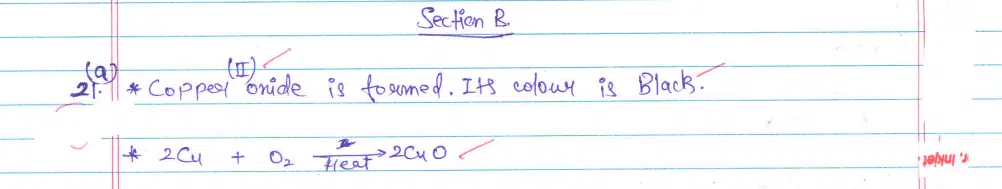 Section B.
(a) (II)
21. * Copper oxide is formed. Its colour is Black.
* 2Cu + O₂ →Heat 2CuO
r. Inkjet